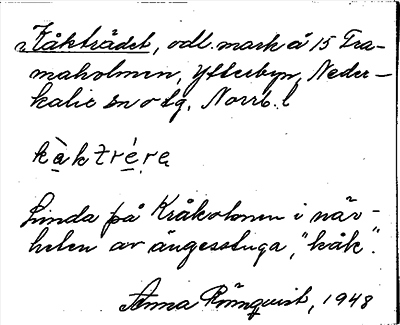 Kåkträdet, odl. mark å 15 Fra-
maholmen, Ytterbyn, Neder-
kalix sn o tg. Norrb. l
kå̀ktrére
Linda på Kråkholmen i när-
heten av ängesstuga, "kåk".
Anna Rönnqvist, 1948